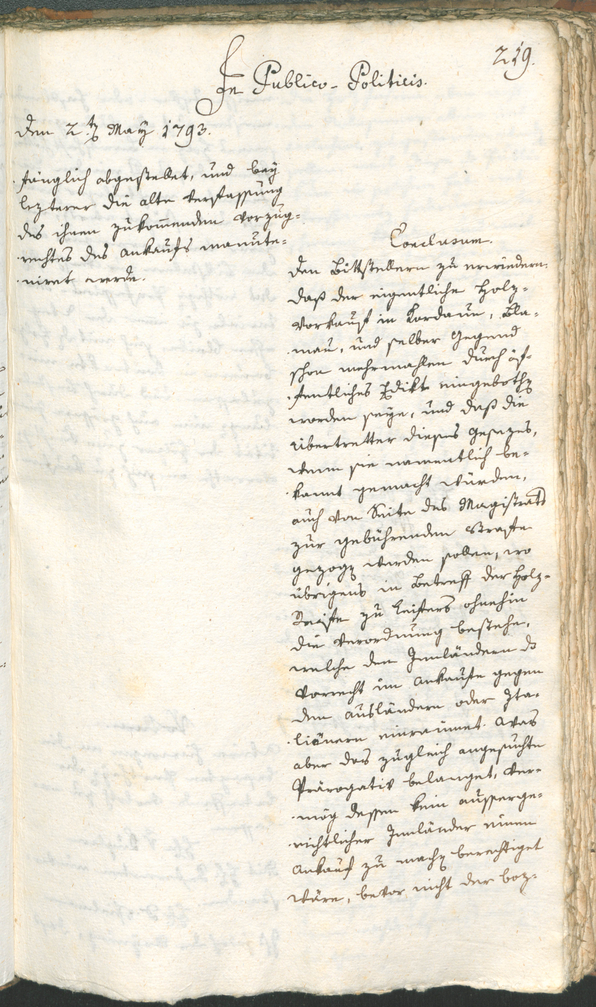 219.
In Publico-Politicis.
Den 2t May 1793.
fänglich abgestellet, und bey
lezterer die alte Verfassung
des ihnen zukommenden Vorzug-
rechtes des Ankaufs manute-
niret werde.
Conclusum.
Den Bittstellern zu erwiedern:
daß der eigentliche Holz-
Vorkauf in Kardaun, Blu-
mau, und selber Gegend
schon mehrmahlen durch öf-
fentliches Edikte eingebothen
worden seye, und daß die
Übertretter dieses Gesezes,
wenn sie namentlich be-
kannt gemacht würden,
auch von Seite des Magistrats
zur gebührenden Straffe
gezogen werden sollen, wo
übrigens in Betreff der Holz-
Reiffe zu Leifers ohnehin
die Verordnung bestehe,
welche den Innländern das
Vorrecht im Ankaufe gegen
den Ausländern oder Ita-
liänern einraumet. Was
aber das zugleich angesuchte
Prärogativ belanget, ver-
mög dessen kein aussergе-
richtlicher Innländer einen
Ankauf zu machen berechtiget
wäre, bevor nicht der boz-